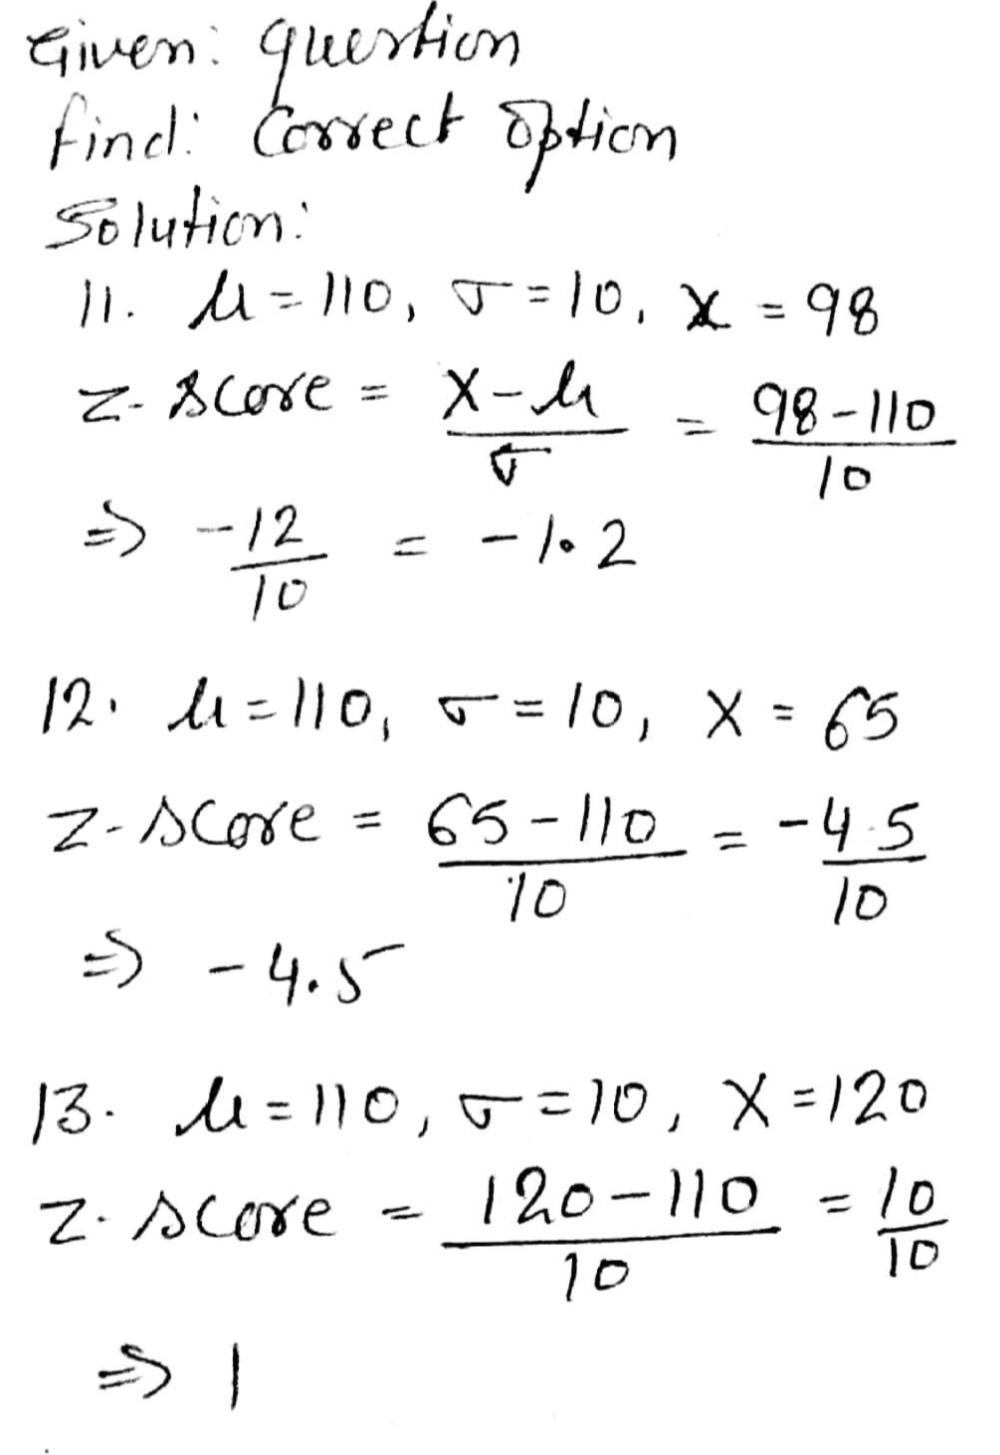 Given: question
find: Correct option
Solution:
11. μ = 110, σ = 10, x = 98
Z-score = X-μ/σ = 98-110/10
⇒ -12/10 = -1.2
12. μ = 110, σ = 10, X = 65
Z-score = 65-110/10 = -45/10
⇒ -4.5
13. μ = 110, σ = 10, X = 120
Z-score = 120-110/10 = 10/10
⇒ 1